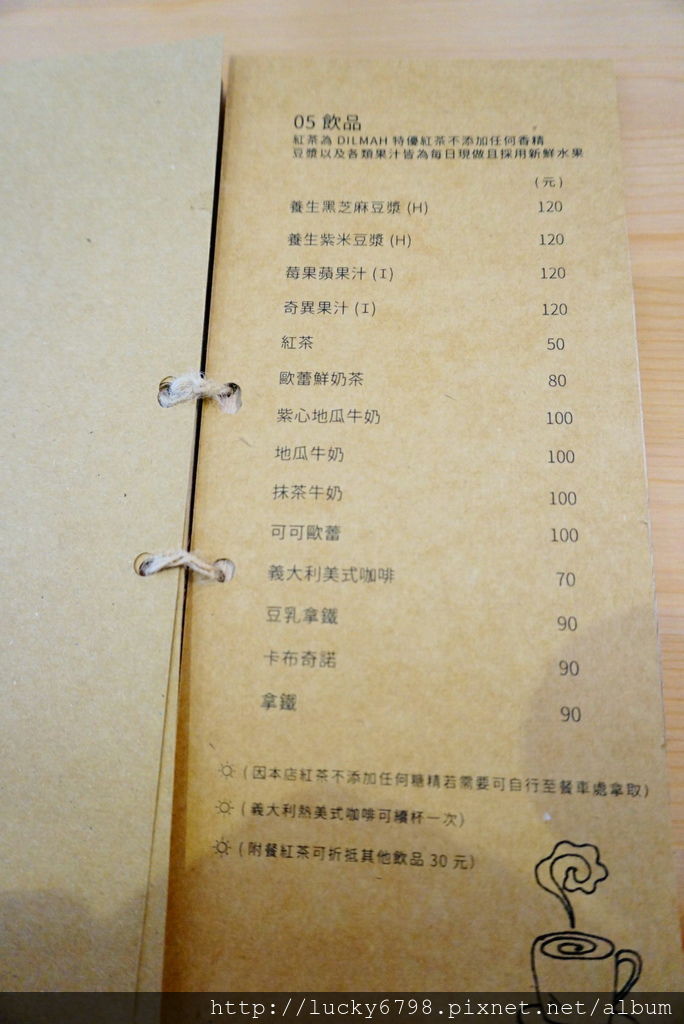 05 飲品
紅茶為 DILMAH 特優紅茶不添加任何香精
豆漿以及各類果汁皆為每日現做且採用新鮮水果
(元)
養生黑芝麻豆漿 (H) 120
養生紫米豆漿 (H) 120
莓果蘋果汁 (I) 120
奇異果汁 (I) 120
紅茶 50
歐蕾鮮奶茶 80
紫心地瓜牛奶 100
地瓜牛奶 100
抹茶牛奶 100
可可歐蕾 100
義大利美式咖啡 70
豆乳拿鐵 90
卡布奇諾 90
拿鐵 90
(因本店紅茶不添加任何糖精若需要可自行至餐車處拿取)
(義大利熱美式咖啡可續杯一次)
(附餐紅茶可折抵其他飲品 30 元)
http://lucky6798.pixnet.net/album